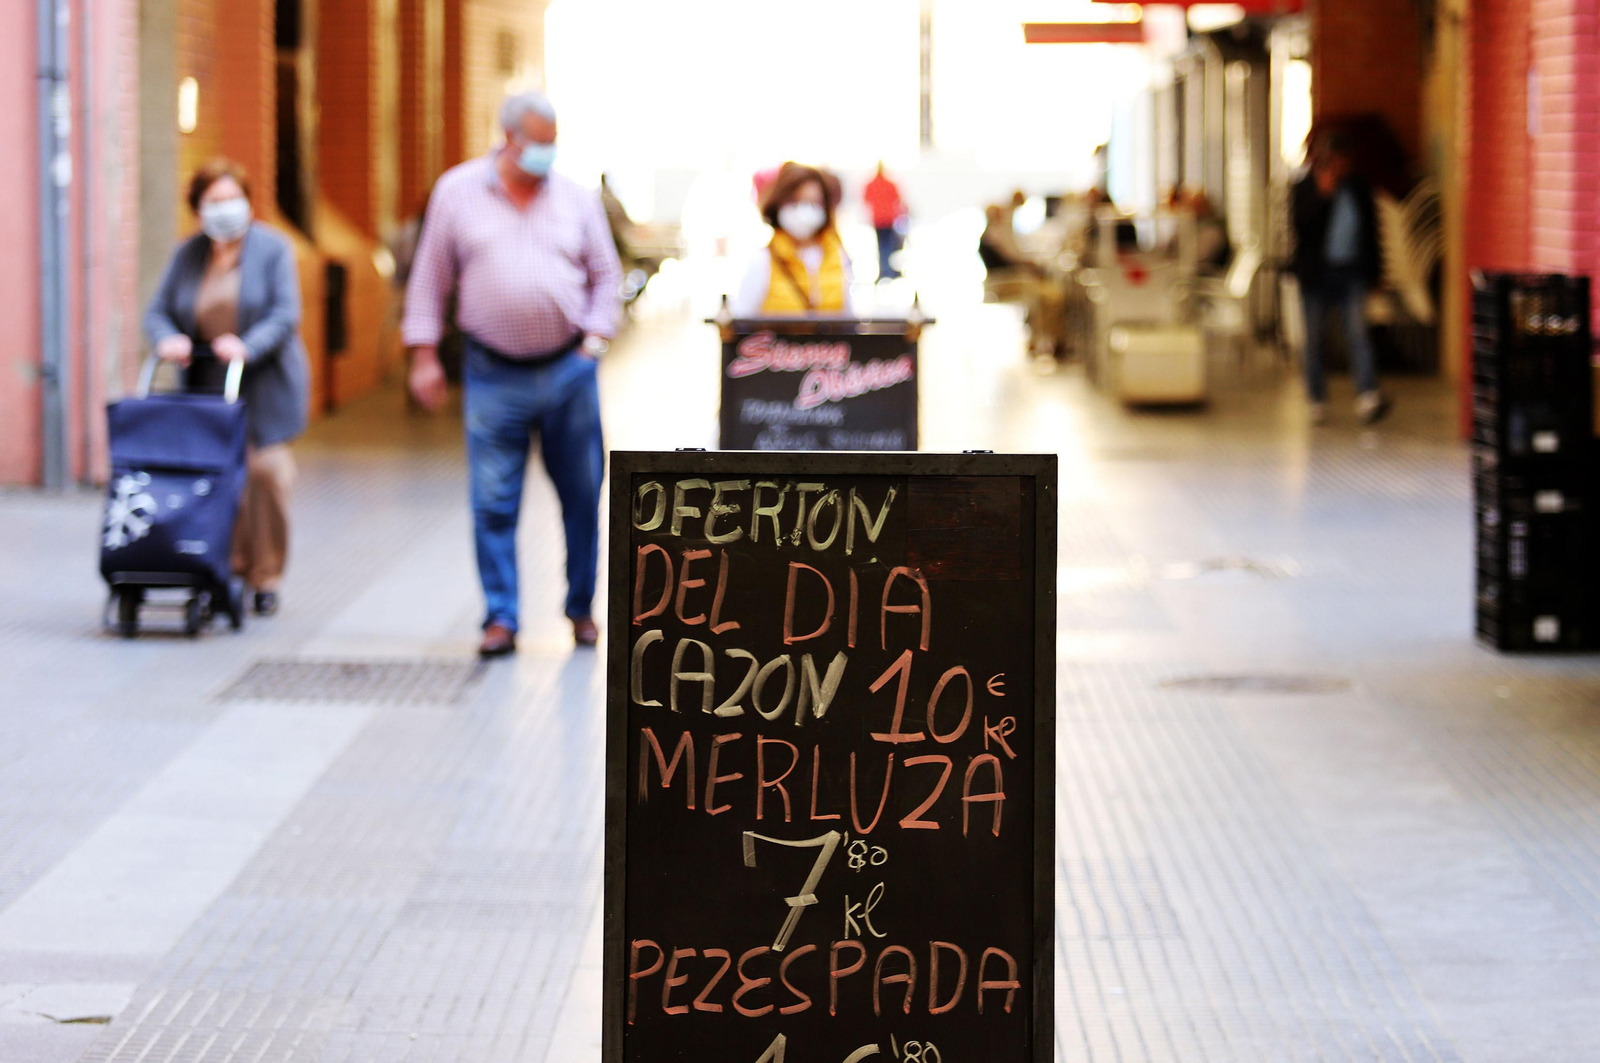 OFERTON
DEL DIA
CAZON 10€ kl
MERLUZA
7'80 kl
PEZESPADA